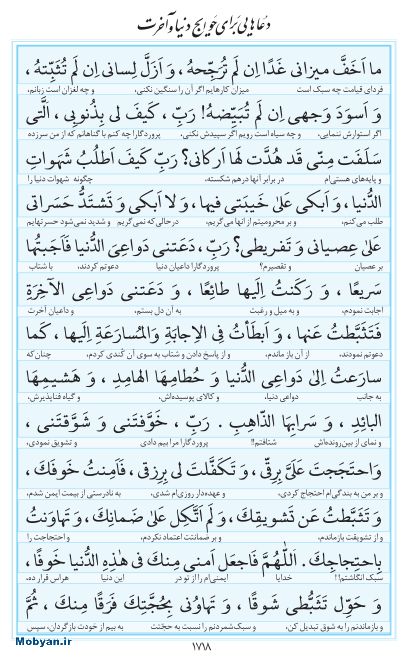 دعاهایی برای حوایج دنیا و آخرت
ما اَخَفَّ میزانی غَدًا اِن لَم تُرَجِّحهُ، وَ اَزَلَّ لِسانی اِن لَم تُثَبِّتهُ،
فردای قیامت چه سبک است میزان کارهایم اگر آن را سنگین نکنی، و چه لغزان است زبانم،
وَ اَسوَدَ وَجهی اِن لَم تُبَیِّضهُ! رَبِّ، کَیفَ لی بِذُنوبی، اَلَّتی
اگر استوارش ننمایی، و چه سیاه است رویم اگر سپیدش نکنی. پروردگارا چه کنم با گناهانم که از من سرزده
سَلَفَت مِنّی قَد هُدَّت لَها اَرکانی؟ رَبِّ کَیفَ اَطلُبُ شَهَواتِ
و پایه‌های هستی‌ام در برابر آنها درهم شکسته، چگونه شهوات دنیا را
الدُّنیا، وَ اَبکی عَلیٰ خَیبَتی فیها، وَ لا اَبکی وَ تَشتَدُّ حَسَراتی
طلب می‌کنم، و بر محرومیتم از آنها می‌گریم، درحالی‌که نمی‌گریم و شدید نمی‌شود حسرتهایم
عَلیٰ عِصیانی وَ تَفریطی؟ رَبِّ، دَعَتنی دَواعِی الدُّنیا فَاَجَبتُها
بر عصیان و تقصیرم؟ پروردگارا داعیان دنیا دعوتم کردند، با شتاب
سَریعًا، وَ رَکَنتُ اِلَیها طائِعًا، وَ دَعَتنی دَواعِی الآخِرَةِ
اجابت نمودم، و به میل و رغبت به آن دل بستم، و داعیان آخرت
فَتَثَبَّطتُ عَنها، وَ اَبطَأتُ فِی الاِجابَةِ وَالمُسارَعَةِ اِلَیها، کَما
دعوتم نمودند، از آن باز ماندم، و از پاسخ دادن و شتاب به سوی آن کُندی کردم، چنان‌که
سارَعتُ اِلیٰ دَواعِی الدُّنیا وَ حُطامِهَا الهامِدِ، وَ هَشیمِهَا
به جانب دواعی دنیا، و کالای پوسیده‌اش، و گیاه فناپذیرش،
البائِدِ، وَ سَرابِهَا الذّاهِبِ. رَبِّ، خَوَّفتَنی وَ شَوَّقتَنی،
و نمای از بین‌رونده‌اش شتافتم!! پروردگارا مرا بیم دادی و تشویق نمودی،
وَاحتَجَجتَ عَلَیَّ بِرِقّی، وَ تَکَفَّلتَ لی بِرِزقی، فَاَمِنتُ خَوفَکَ،
و بر من به بندگی‌ام احتجاج کردی، و عهده‌دار روزی‌ام شدی، به نادرستی از بیمت ایمن شدم،
وَ تَثَبَّطتُ عَن تَشویقِکَ، وَ لَم اَتَّکِل عَلیٰ ضَمانِکَ، وَ تَهاوَنتُ
و از تشویقت بازماندم، و بر ضمانتت اعتماد نکردم، و احتجاجت را
بِاحتِجاجِکَ. اَللّٰهُمَّ فَاجعَل اَمنی مِنکَ فی هٰذِهِ الدُّنیا خَوفًا،
سبک انگاشتم!! خدایا ایمنی‌ام را از تو در این دنیا هراس قرار ده،
وَ حَوِّل تَثَبُّطی شَوقًا، وَ تَهاوُنی بِحُجَّتِکَ فَرَقًا مِنکَ، ثُمَّ
و بازماندنم را به شوق تبدیل کن، و سبک‌شمردنم را نسبت به حجّتت به بیم از خودت بازگردان، سپس
۱۷۱۸
Mobyan.ir